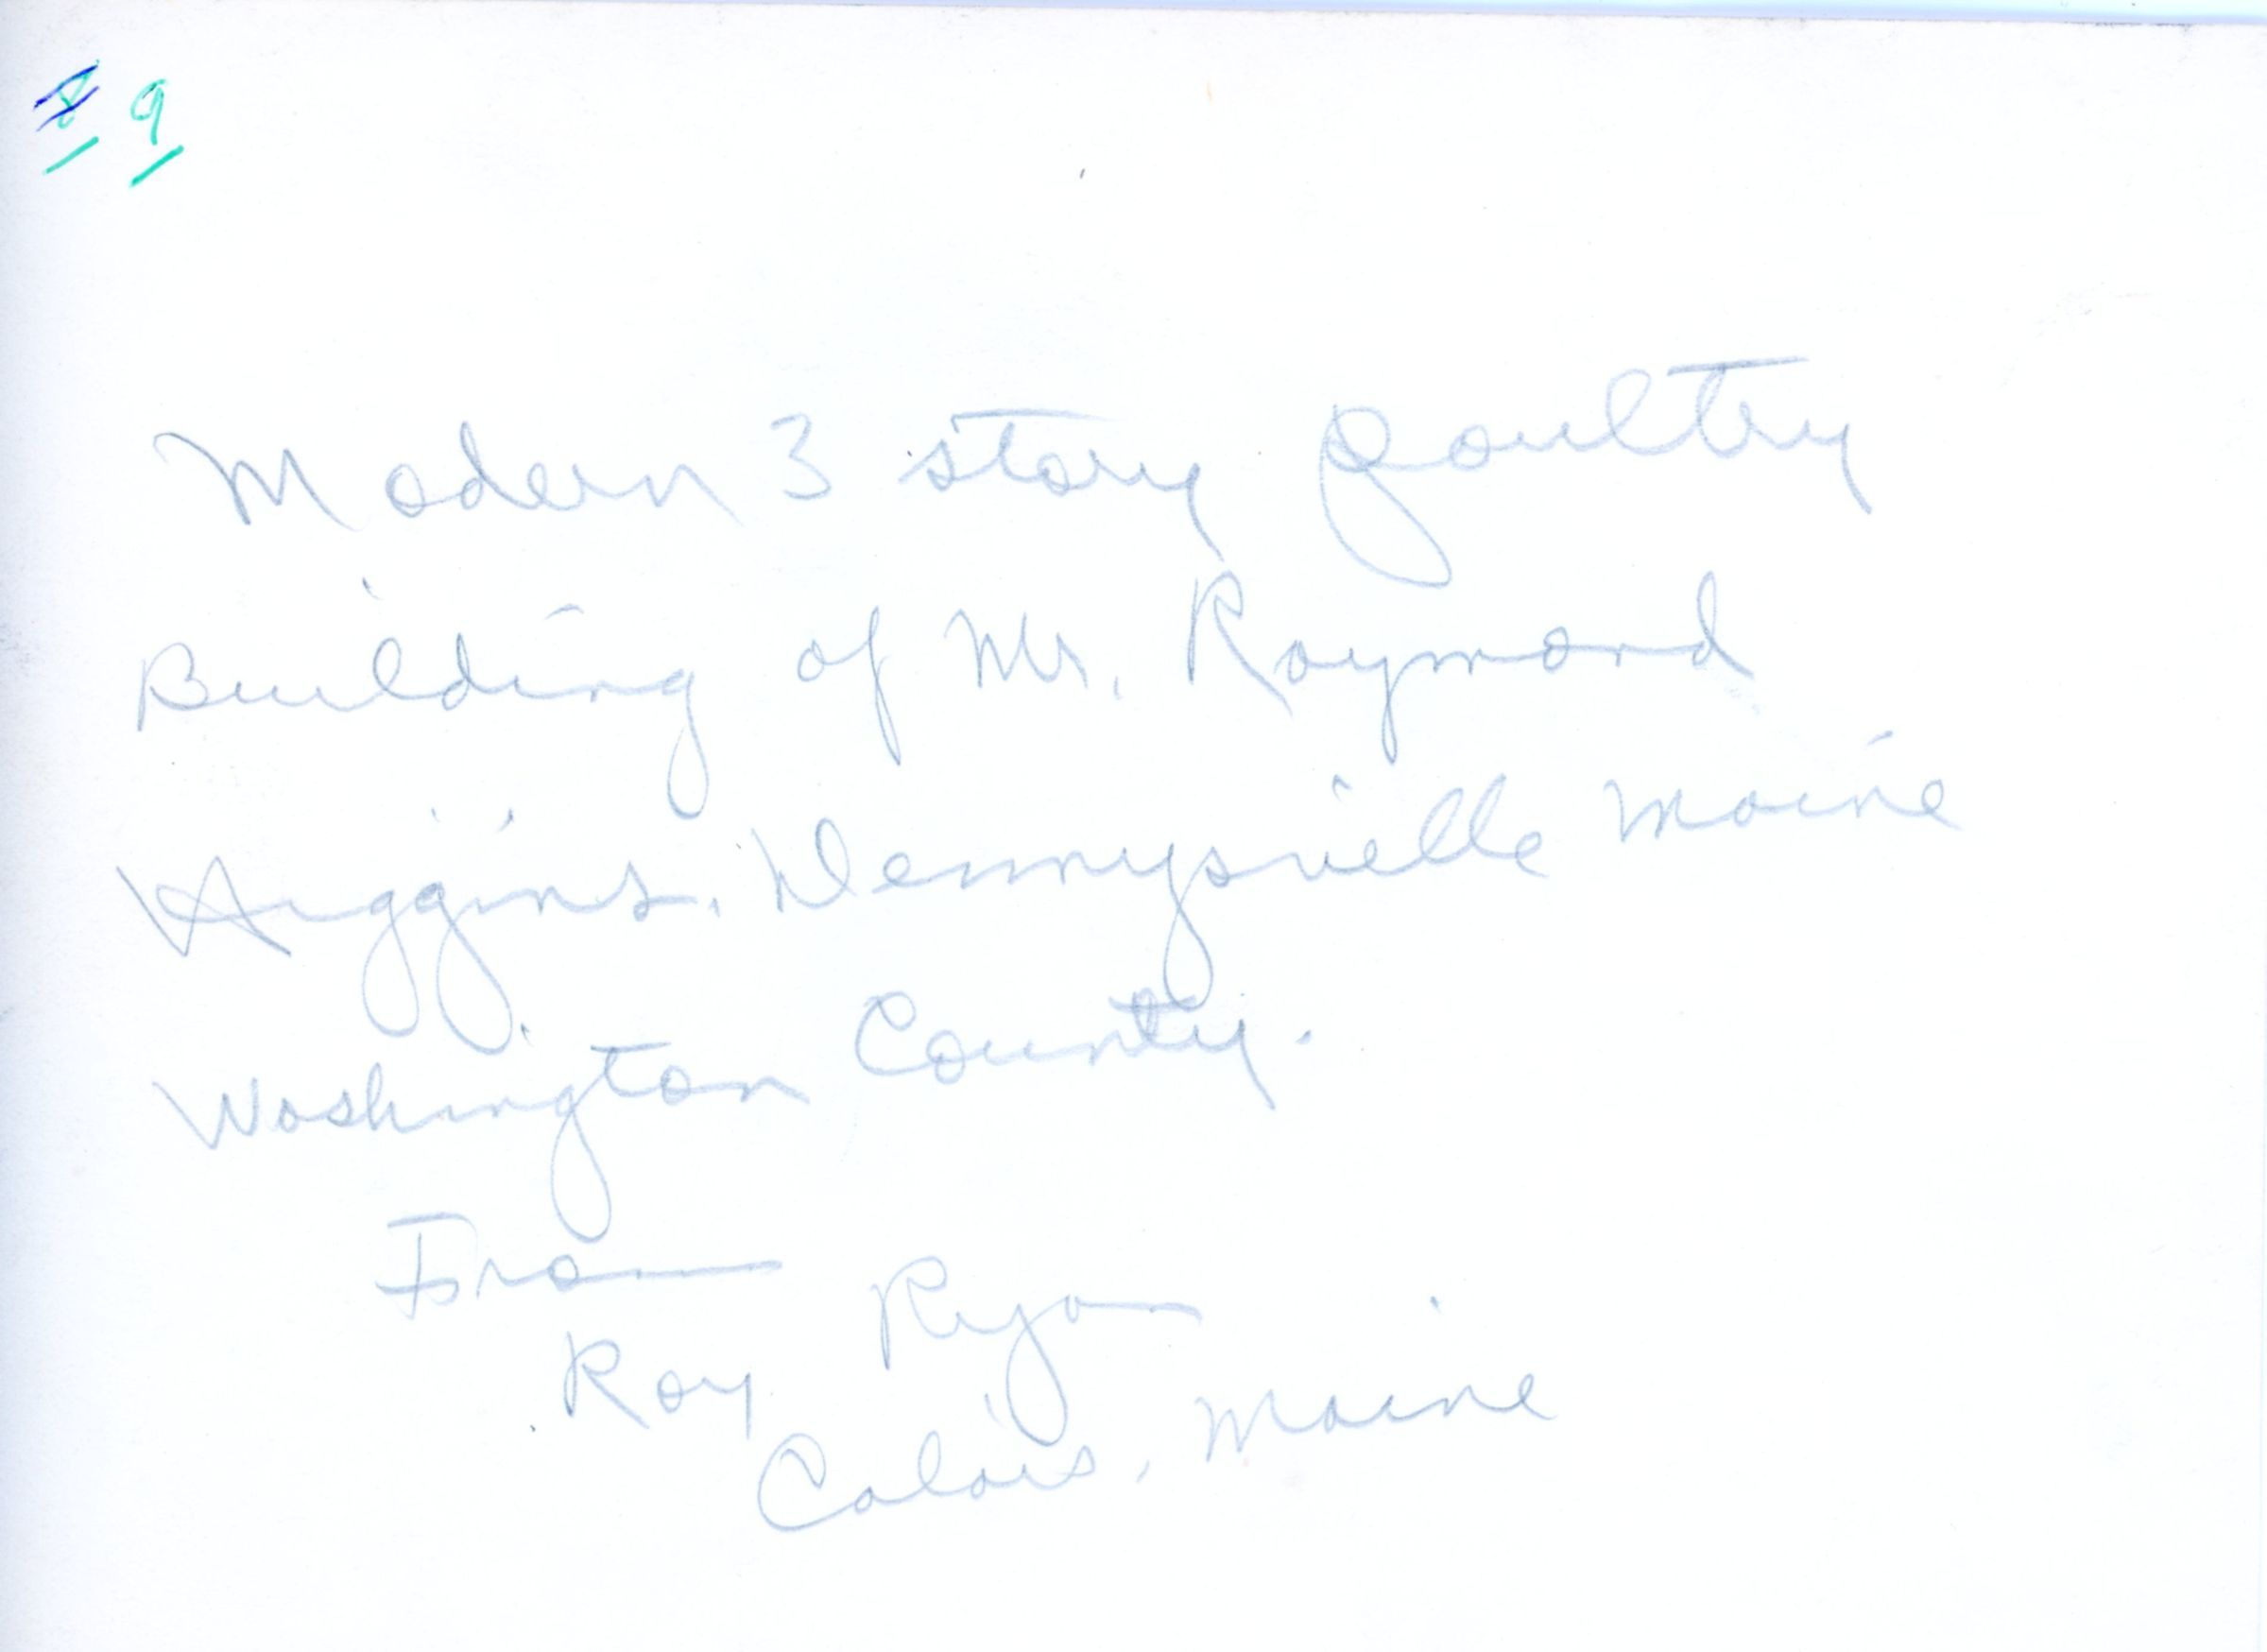 9
Modern 3 story Poultry
Building of Mr. Raymond
Higgins, Dennysville Maine
Washington County.
From
Roy Ryan
Calais, Maine